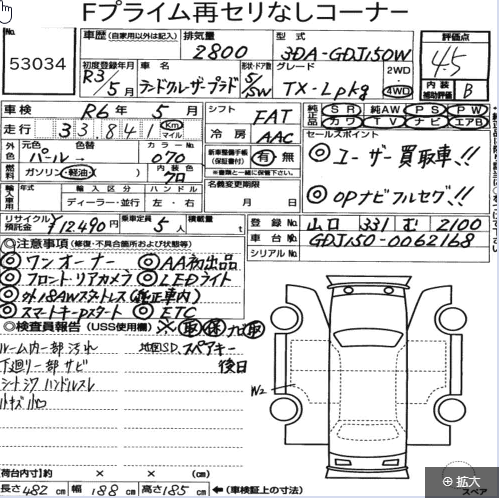 Fプライム再セリなしコーナー
No. 53034
車歴 (自家用以外は記入) 排気量 2800 型式 3DA-GDJ150W 評価点 4.5
初度登録年月 R3/5月 車名 ランドクルーザープラド 形状・ドア数 5/SW グレード TX-Lpkg 2WD・4WD 内装補助評価 B
車検 R6年5月 シフト FAT 純正品 SR 純AW PS PW
カワ TV ナビ エアB
走行 33,841 Km マイル 冷房 AAC セールスポイント
外色 元色 パール→ 色替 カラーNo. 070 新車整備手帳(保証書付) 有・無
◎ユーザー買取車!!
燃料 ガソリン・軽油・ 内装色 クロ ※書類と一緒に保管下さい。
輸入車 年式 輸入区分 ディーラー・並行 ハンドル 左・右 名義変更期限 月 日
◎OPナビフルセグ!!
リサイクル預託金 ¥12490円 乗車定員 5人 積載量 t 登録No. 山口 331 む 2100
車台No. GDJ150-0062168
シリアルNo.
◎注意事項 (修復・不具合箇所および状態等)
◎ワンオーナー ◎AA初出品
◎フロントリアカメラ ◎LEDライト
◎外18AWスタットレス(純正車内)
◎スマートキーPスタート ◎ETC
◎検査員報告 (USS使用欄) ※ 取 保 ナビ取
ルーム内一部汚れ 地図SD、スペアキー
後日
下廻り一部サビ
シートシワ ハンドルスレ
W2
荷台内寸 約 × × (cm)
長さ 482 cm 幅 188 cm 高さ 185 cm ←(車検証上の寸法)
スペア
拡大